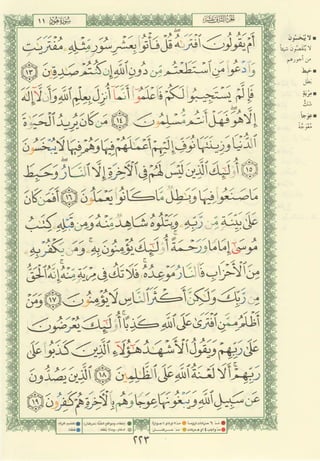 الجزء الثاني عشر
سورة هود ١١
أَمْ يَقُولُونَ ٱفْتَرَىٰهُ ۖ قُلْ فَأْتُوا۟ بِعَشْرِ سُوَرٍ مِّثْلِهِۦ مُفْتَرَيَٰتٍ
وَٱدْعُوا۟ مَنِ ٱسْتَطَعْتُم مِّن دُونِ ٱللَّهِ إِن كُنتُمْ صَٰدِقِينَ ١٣
فَإِلَّمْ يَسْتَجِيبُوا۟ لَكُمْ فَٱعْلَمُوٓا۟ أَنَّمَآ أُنزِلَ بِعِلْمِ ٱللَّهِ وَأَن لَّآ إِلَٰهَ
إِلَّا هُوَ ۖ فَهَلْ أَنتُم مُّسْلِمُونَ ١٤ مَن كَانَ يُرِيدُ ٱلْحَيَوٰةَ
ٱلدُّنْيَا وَزِينَتَهَا نُوَفِّ إِلَيْهِمْ أَعْمَٰلَهُمْ فِيهَا وَهُمْ فِيهَا لَا يُبْخَسُونَ
١٥ أُو۟لَٰٓئِكَ ٱلَّذِينَ لَيْسَ لَهُمْ فِى ٱلْءَاخِرَةِ إِلَّا ٱلنَّارُ ۖ وَحَبِطَ
مَا صَنَعُوا۟ فِيهَا وَبَٰطِلٌ مَّا كَانُوا۟ يَعْمَلُونَ ١٦ أَفَمَن كَانَ
عَلَىٰ بَيِّنَةٍ مِّن رَّبِّهِۦ وَيَتْلُوهُ شَاهِدٌ مِّنْهُ وَمِن قَبْلِهِۦ كِتَٰبُ
مُوسَىٰٓ إِمَامًا وَرَحْمَةً ۚ أُو۟لَٰٓئِكَ يُؤْمِنُونَ بِهِۦ ۚ وَمَن يَكْفُرْ بِهِۦ
مِنَ ٱلْأَحْزَابِ فَٱلنَّارُ مَوْعِدُهُۥ ۚ فَلَا تَكُ فِى مِرْيَةٍ مِّنْهُ ۚ إِنَّهُ ٱلْحَقُّ
مِن رَّبِّكَ وَلَٰكِنَّ أَكْثَرَ ٱلنَّاسِ لَا يُؤْمِنُونَ ١٧ وَمَنْ
أَظْلَمُ مِمَّنِ ٱفْتَرَىٰ عَلَى ٱللَّهِ كَذِبًا ۚ أُو۟لَٰٓئِكَ يُعْرَضُونَ
عَلَىٰ رَبِّهِمْ وَيَقُولُ ٱلْأَشْهَٰدُ هَٰٓؤُلَآءِ ٱلَّذِينَ كَذَبُوا۟ عَلَىٰ
رَبِّهِمْ ۚ أَلَا لَعْنَةُ ٱللَّهِ عَلَى ٱلظَّٰلِمِينَ ١٨ ٱلَّذِينَ يَصُدُّونَ
عَن سَبِيلِ ٱللَّهِ وَيَبْغُونَهَا عِوَجًا وَهُم بِٱلْءَاخِرَةِ هُمْ كَٰفِرُونَ ١٩
لا يُبْخَسُونَ
لا يُنْقَصُونَ شيئاً
من أجورهم
حَبِطَ
بَطَلَ
مِرْيَةٍ
شَكٍّ
عِوَجًا
مُعْوَجَّةً
٢٢٣